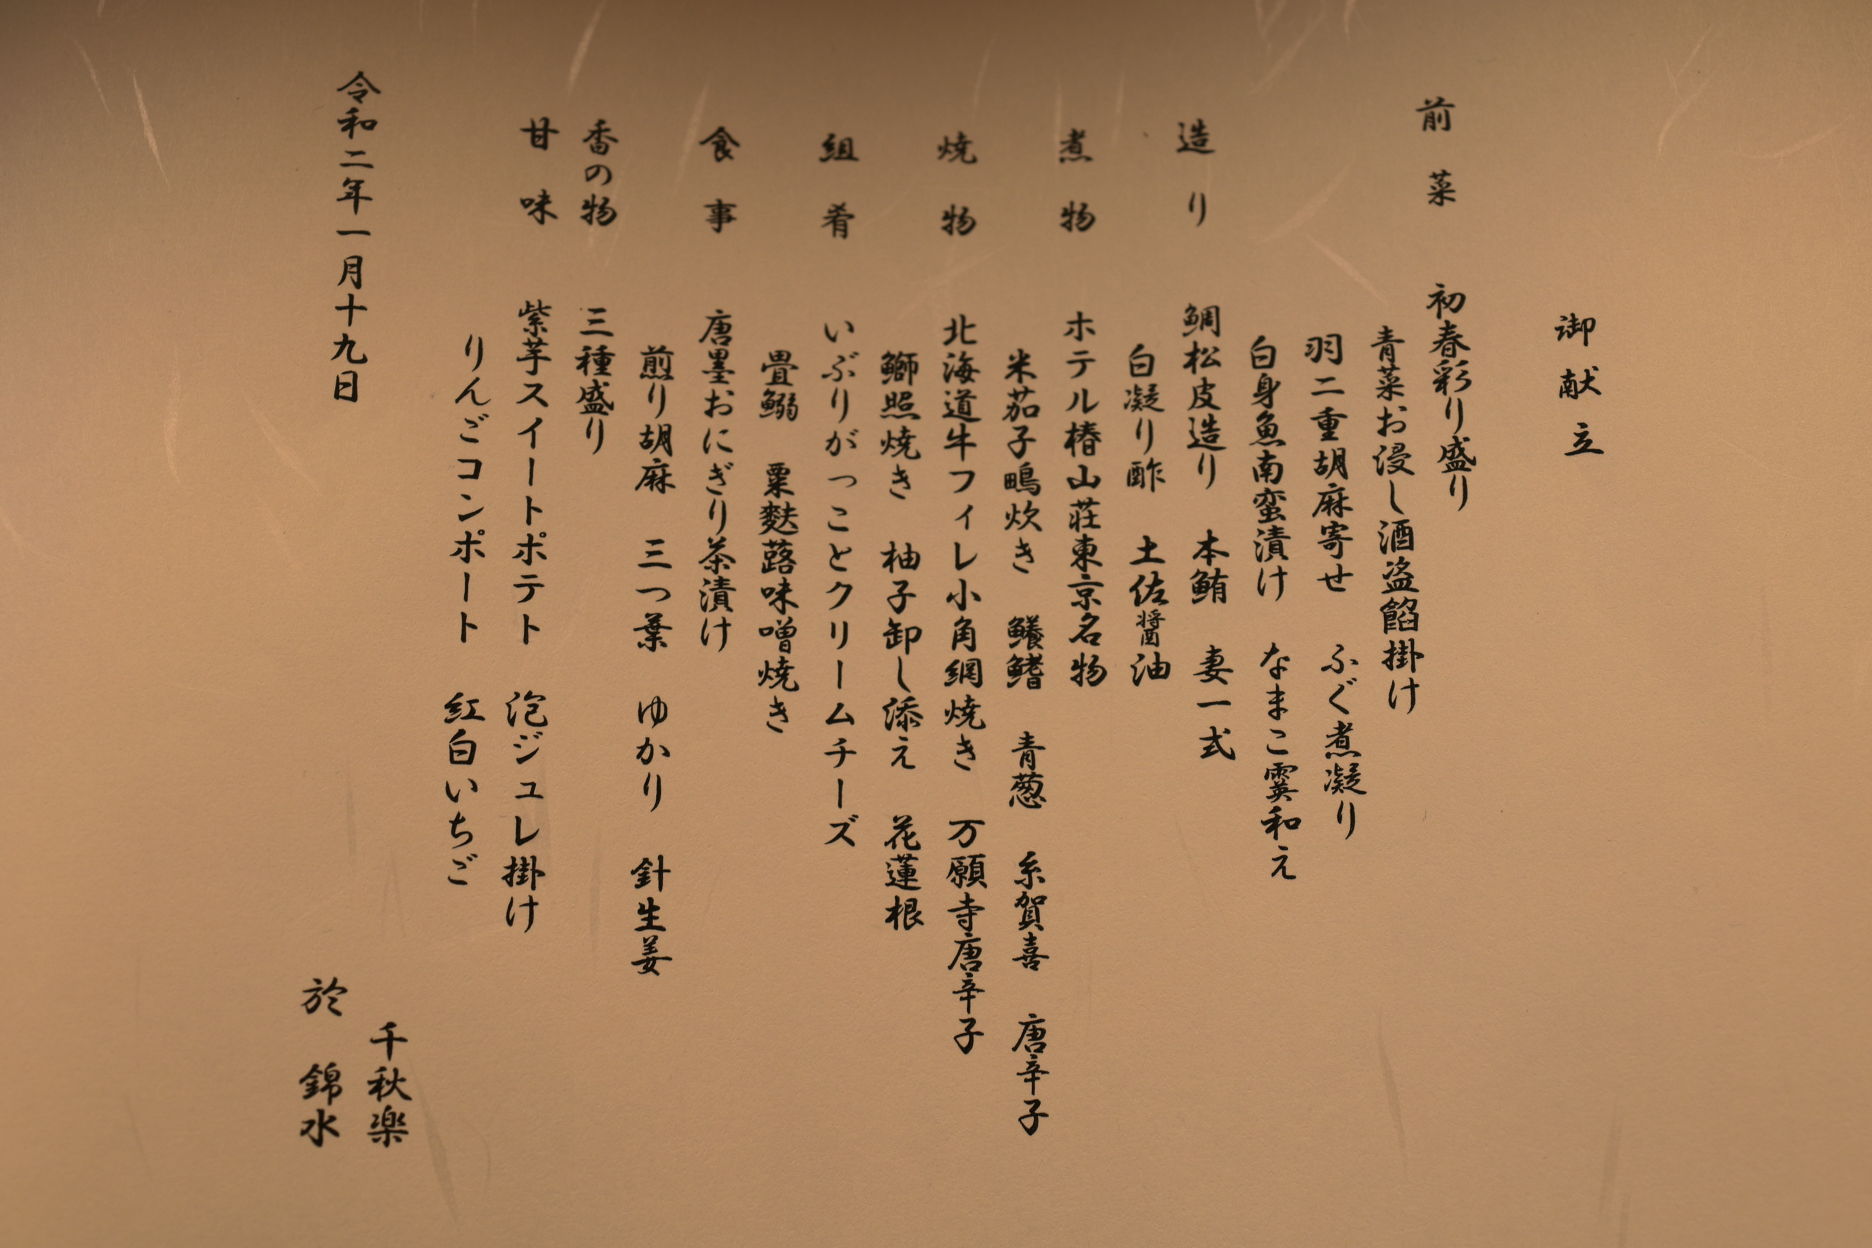 御献立
前菜 初春彩り盛り
青菜お浸し酒盗餡掛け
羽二重胡麻寄せ ふぐ煮凝り
白身魚南蛮漬け なまこ霙和え
造り 鯛松皮造り 本鮪 妻一式
白凝り酢 土佐醤油
煮物 ホテル椿山荘東京名物
米茄子鴫炊き 鱶鰭 青葱 糸賀喜 唐辛子
焼物 北海道牛フィレ小角網焼き 万願寺唐辛子
鰤照焼き 柚子卸し添え 花蓮根
組肴 いぶりがっことクリームチーズ
畳鰯 粟麩蕗味噌焼き
食事 唐墨おにぎり茶漬け
煎り胡麻 三つ葉 ゆかり 針生姜
香の物 三種盛り
甘味 紫芋スイートポテト 泡ジュレ掛け
りんごコンポート 紅白いちご
千秋楽
令和二年一月十九日 於 錦水